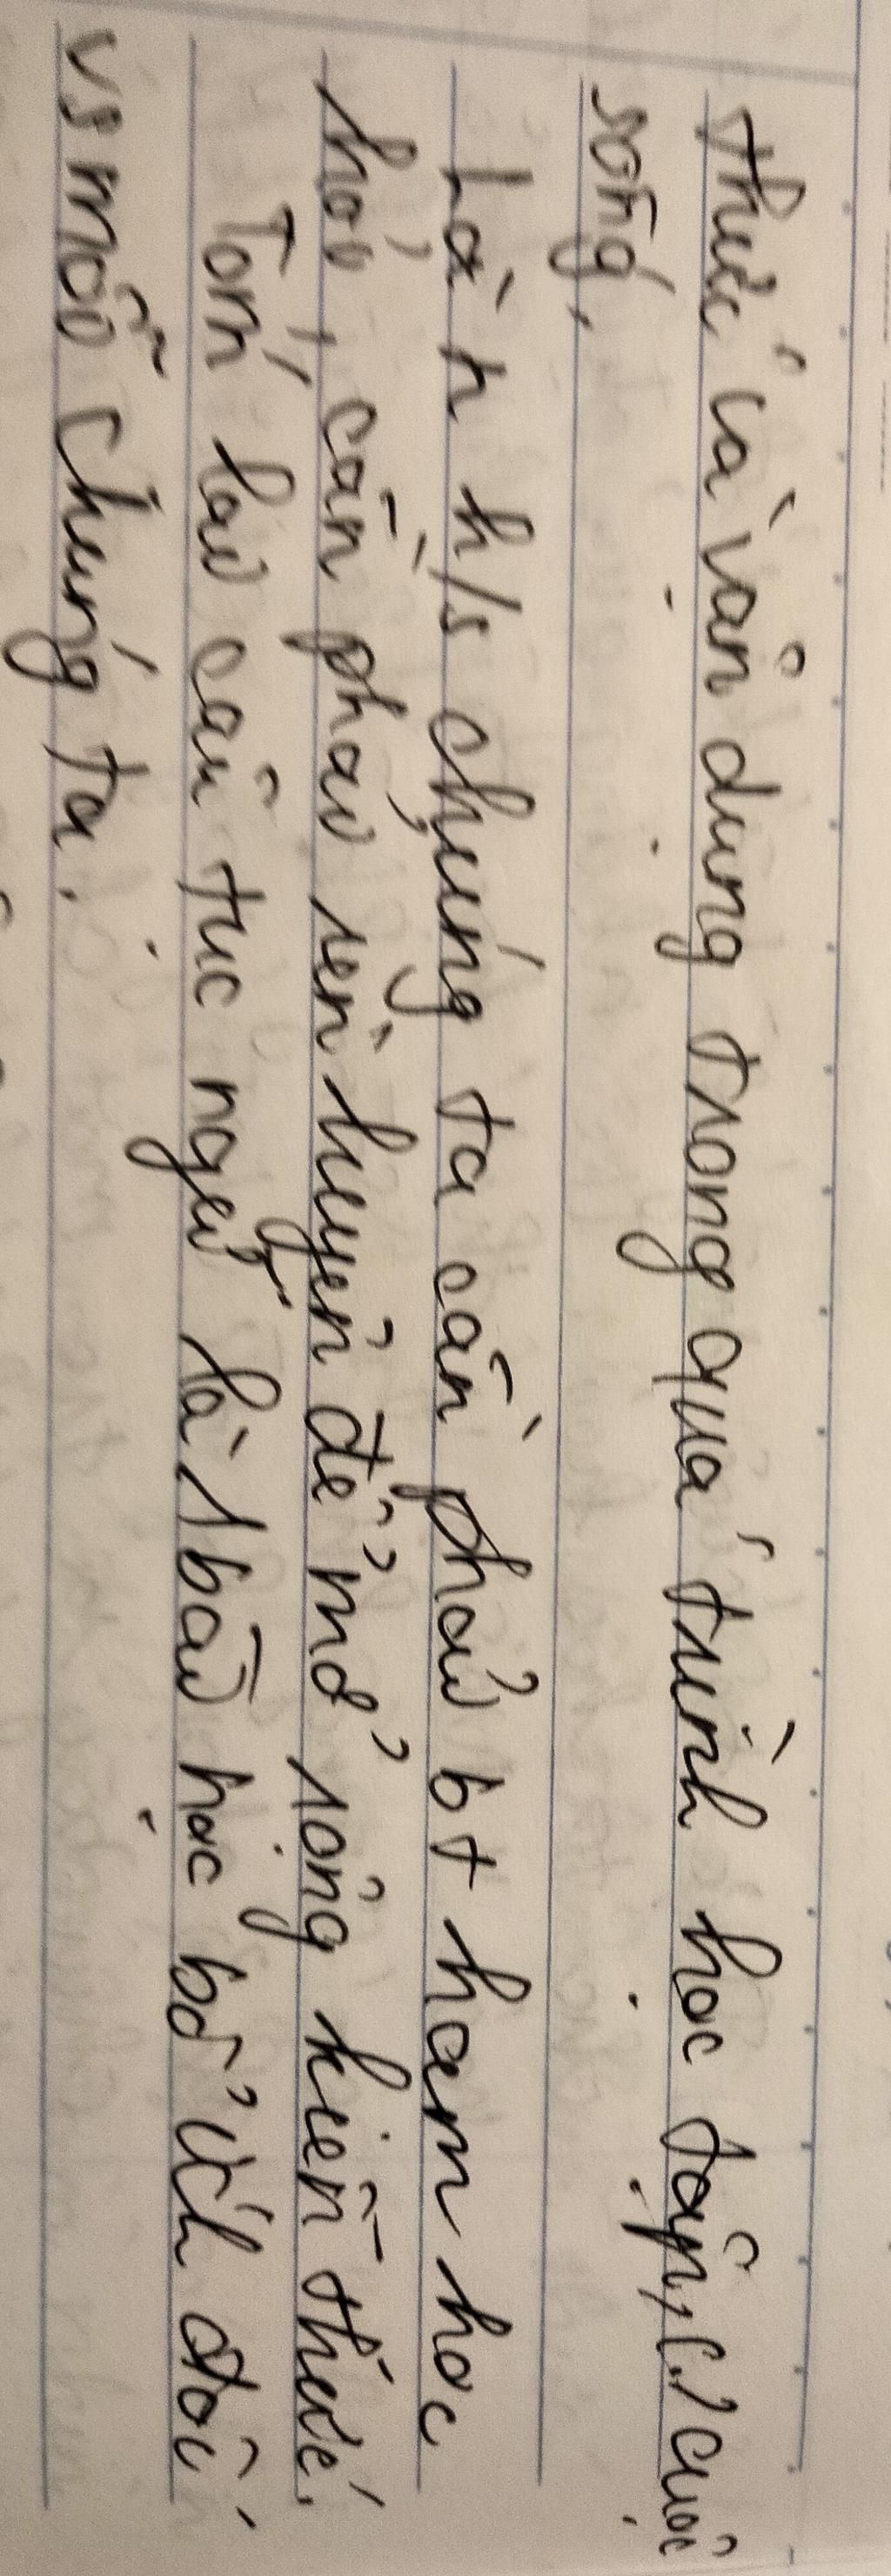 thức và vận dụng trong quá trình học tập, cuộc
sống.
Là h h/s chúng ta cần phải bt ham học
hỏi, cần phải rèn luyện để mở rộng kiến thức.
Tóm lại câu tục ngữ là 1 bài học bổ ích đối
vs mỗi chúng ta.